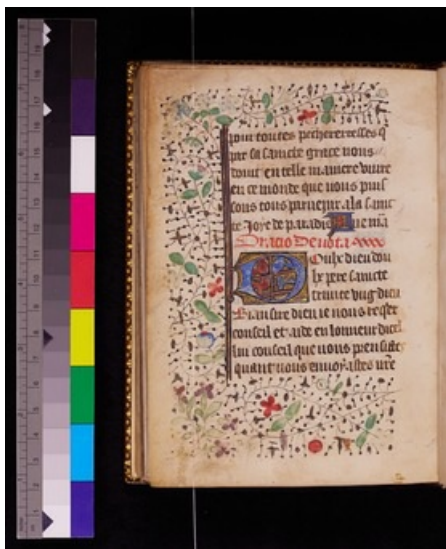 pour toutes pecherresses q
par sa saincte grace nous
doint en telle maniere vivre
en ce monde que nous puis
sons tous parvenir a la sainc
te Joye de paradis Ave ma
Oracio devota
Oulx dieu dou
lx pere saincte
trinite ung dieu
Biau sire dieu ie vous reqer
conseil et aide en lonneur dicel
lui conseil que vous prensistes
quant vous envoyastes vrē